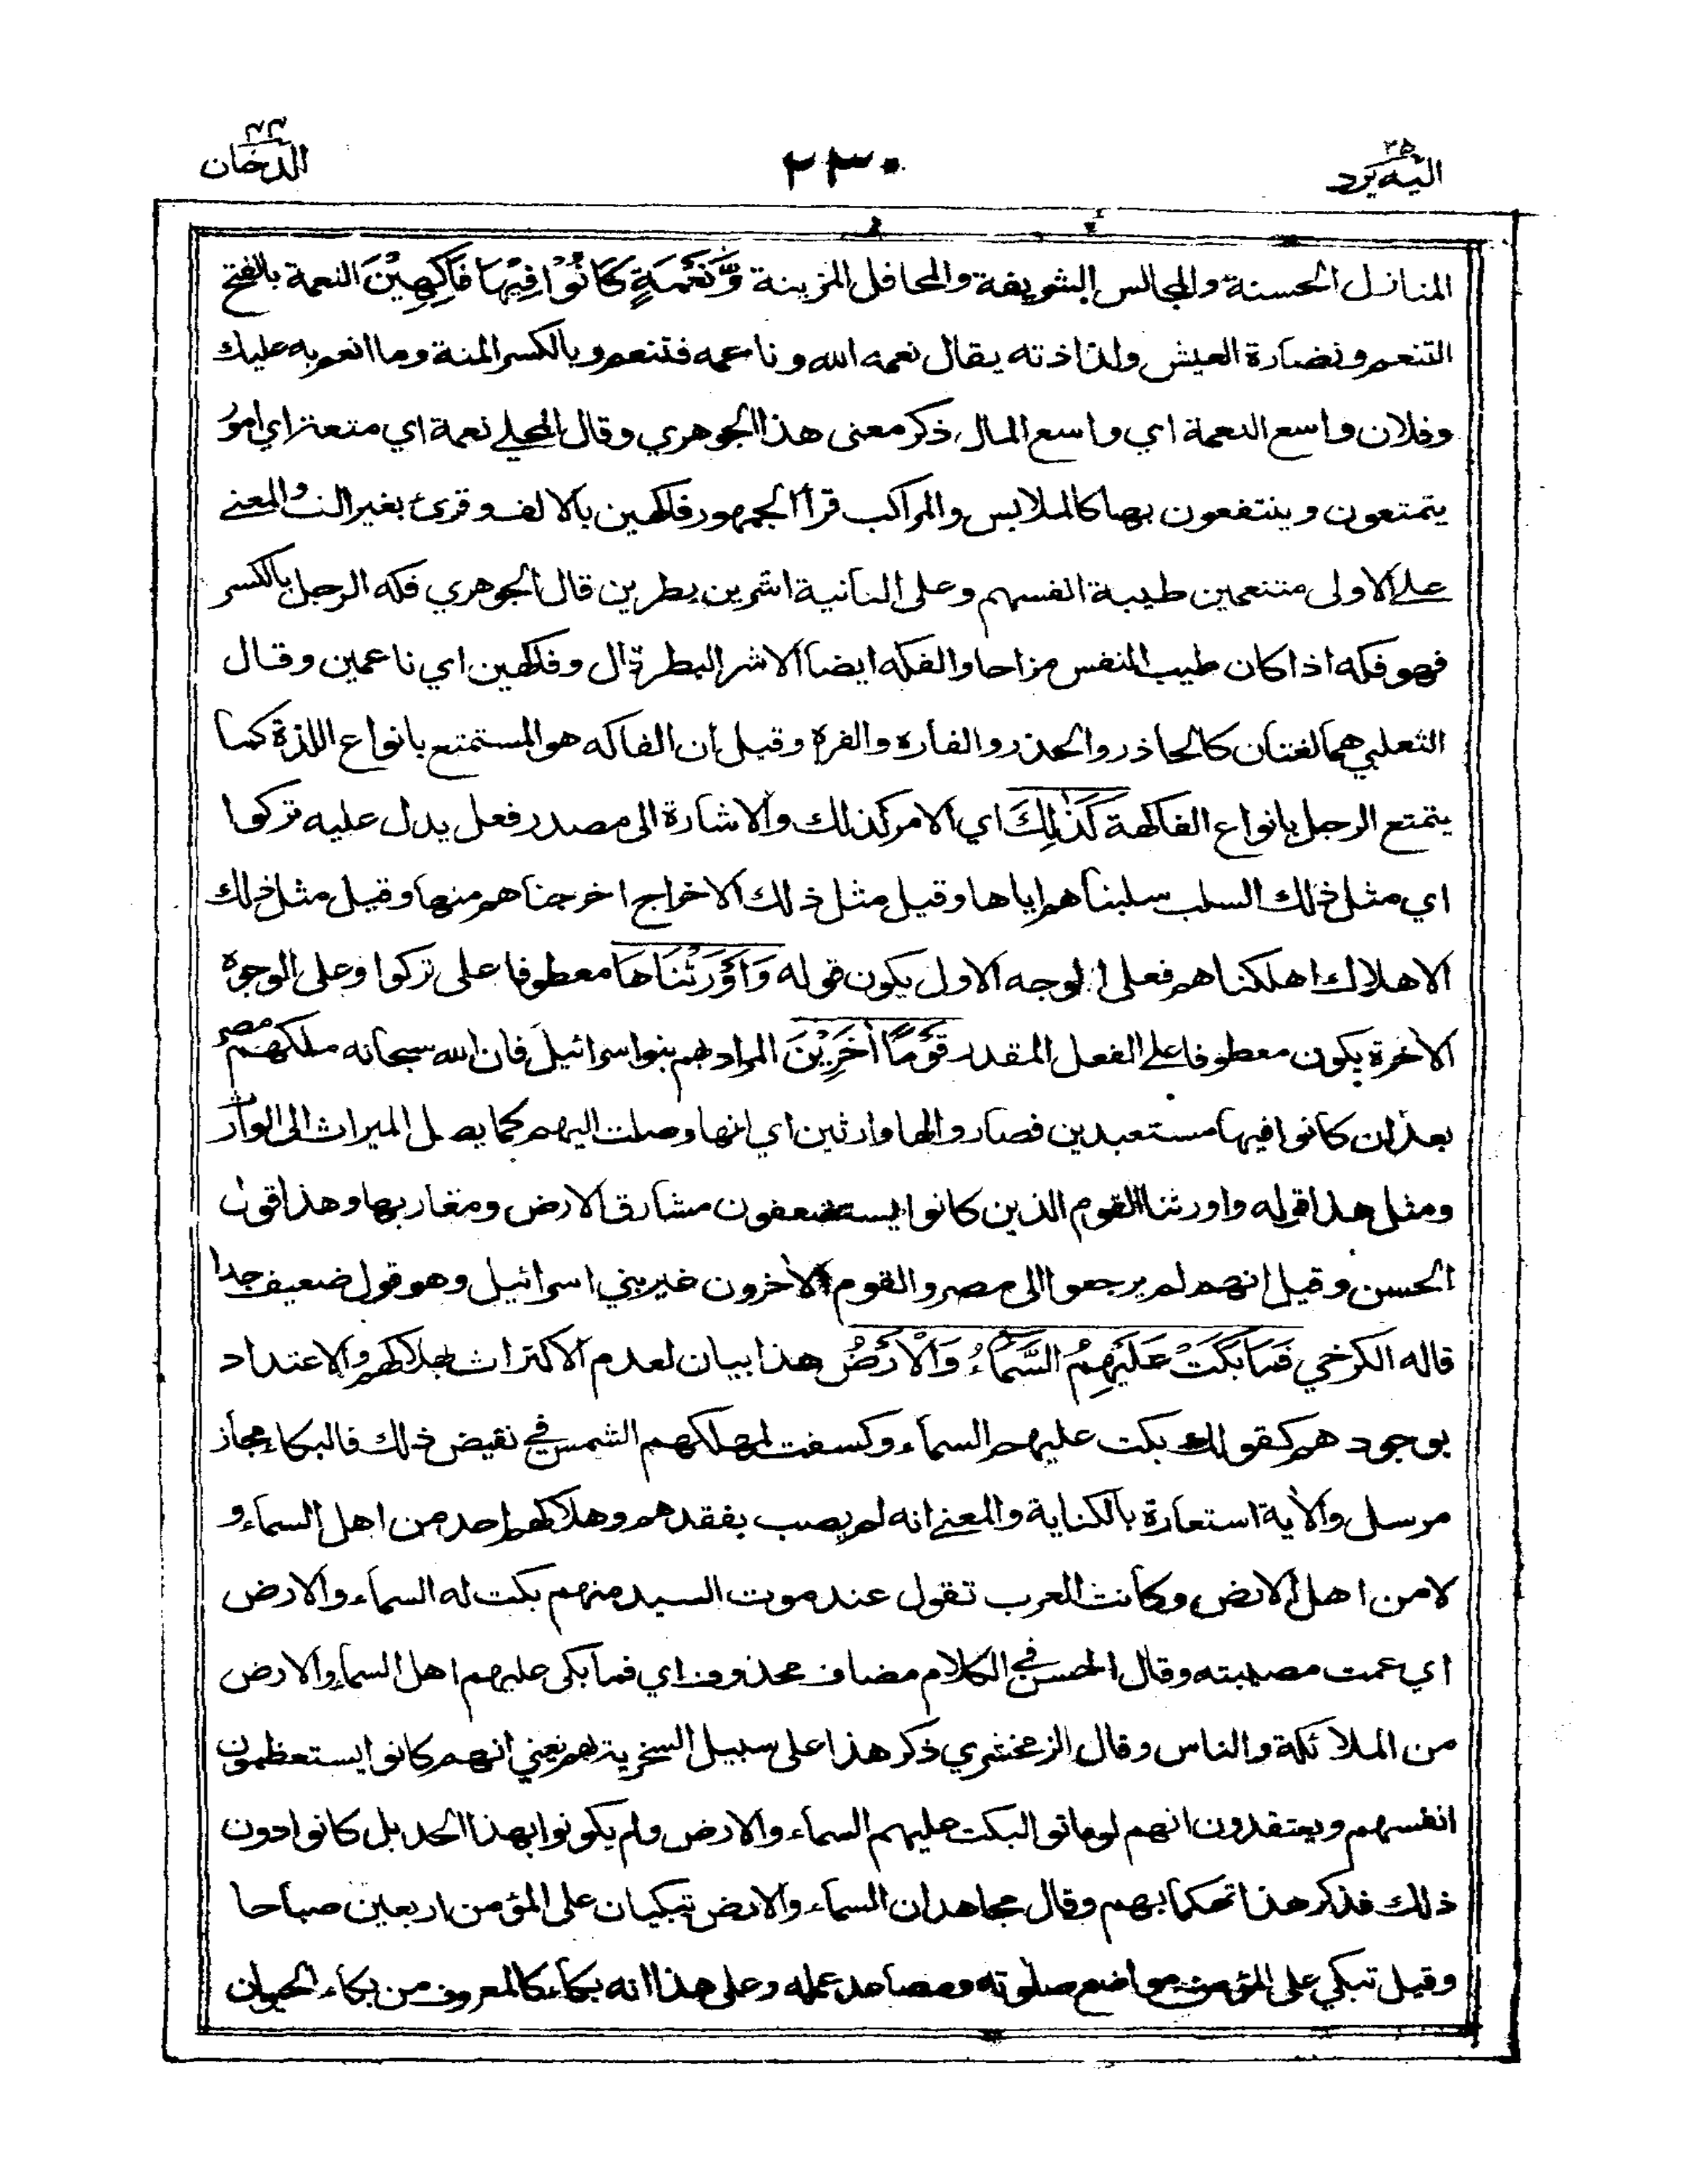 اليه يرد ٢٥
٢٣٠
الدخان ٤٤
المنازل الحسنة والمجالس الشريفة والمحافل المزينة وَّنَعْمَةٍ كَانُوْا فِيْهَا فَاكِهِيْنَ النعمة بالفتح
التنعم ونضارة العيش ولذاذته يقال نعمه الله وناعمه فتنعم وبالكسر المنة وما انعم به عليك
وفلان واسع النعمة اي واسع المال ذكر معنى هذا الجوهري وقال المحلي نعمة اي متعة اي امور
يتمتعون وينتفعون بها كالملابس والمراكب قرأ الجمهور فاكهين بالالف وقرئ بغير الف والمعنى
على الاولى متنعمين طيبة انفسهم وعلى الثانية اشرين بطرين قال الجوهري فكه الرجل بالكسر
فهو فكه اذا كان طيب النفس مزاحا والفكه ايضا الاشر البطر قال وفاكهين اي ناعمين وقال
الثعلبي هما لغتان كالحاذر والحذر والفاره والفره وقيل ان الفاكه هو المستمتع بانواع اللذة كما
يتمتع الرجل بانواع الفاكهة كَذٰلِكَ اي الامر كذلك والاشارة الى مصدر فعل يدل عليه تركوا
اي مثل ذلك السلب سلبناهم اياها وقيل مثل ذلك الاخراج اخرجناهم منها وقيل مثل ذلك
الاهلاك اهلكناهم فعلى الوجه الاول يكون قوله وَاَوْرَثْنَاهَا معطوفا على تركوا وعلى الوجوه
الاخرة يكون معطوفا على الفعل المقدر قَوْمًا اٰخَرِيْنَ المراد بهم بنو اسرائيل فان الله سبحانه ملكهم مصر
بعد ان كانوا فيها مستعبدين فصاروا لها وارثين اي انها وصلت اليهم كما يصل الميراث الى الوارث
ومثل هذا قوله واورثنا القوم الذين كانوا يستضعفون مشارق الارض ومغاربها وهذا قول
الحسن وقيل انهم لم يرجعوا الى مصر والقوم الاخرون غير بني اسرائيل وهو قول ضعيف جدا
قاله الكرخي فَمَا بَكَتْ عَلَيْهِمُ السَّمَآءُ وَالْاَرْضُ هذا بيان لعدم الاكتراث بهلاكهم والاعتداد
بوجودهم كقولك بكت عليهم السماء وكسفت لمهلكهم الشمس في نقيض ذلك فالبكاء مجاز
مرسل والاية استعارة بالكناية والمعنى انه لم يصب بفقدهم وهلاكهم احد من اهل السماء و
لا من اهل الارض وكانت العرب تقول عند موت السيد منهم بكت له السماء والارض
اي عمت مصيبته وقال الحسن في الكلام مضاف محذوف اي فما بكى عليهم اهل السماء والارض
من الملائكة والناس وقال الزمخشري ذكر هذا على سبيل السخرية بهم يعني انهم كانوا يستعظمون
انفسهم ويعتقدون انهم لو ماتوا لبكت عليهم السماء والارض ولم يكونوا بهذا الحد بل كانوا دون
ذلك فذكر هذا تهكما بهم وقال مجاهد ان السماء والارض تبكيان على المؤمن اربعين صباحا
وقيل تبكي على المؤمن مواضع صلوته ومصاعد عمله وعلى هذا انه بكاء كالمعروف من بكاء الحيوان